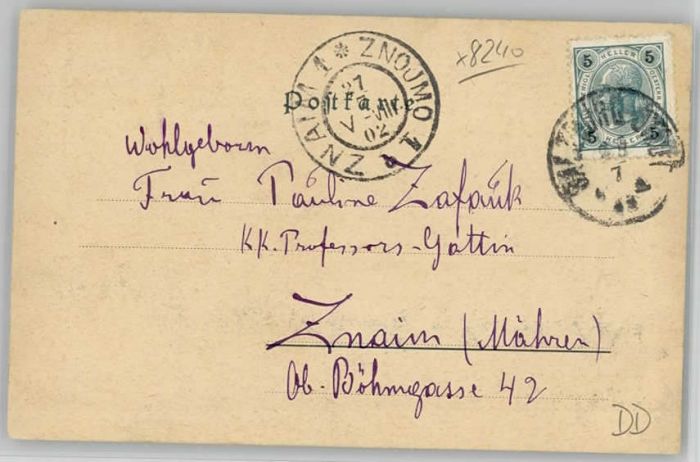 x8240
5 HELLER 5
ZNAIM 1 * ZNOJMO 1
27
VIII
02
V
Postkarte
5 5
7
Wohlgeboren
Frau Pauline Zafauk
KK. Professors-Gattin
Znaim (Mähren)
Ob. Böhmgasse 42
DD